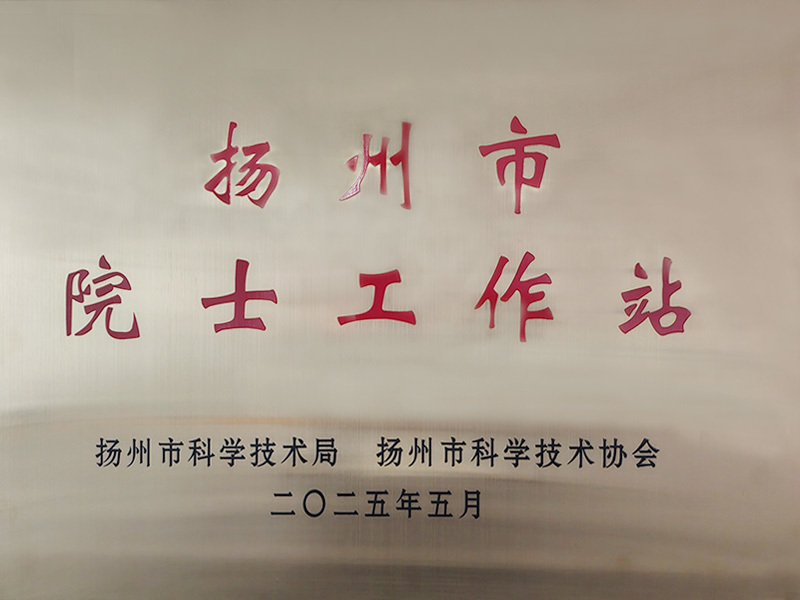 扬州市
院士工作站
扬州市科学技术局 扬州市科学技术协会
二〇二五年五月